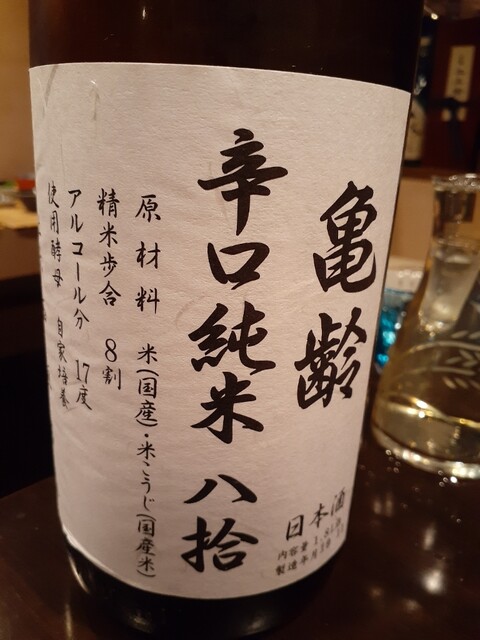 亀齢
辛口純米 八拾
日本酒
原材料 米(国産)・米こうじ(国産米)
精米歩合 8割
アルコール分 17度
使用酵母 自家培養
内容量 1.8L
製造年月